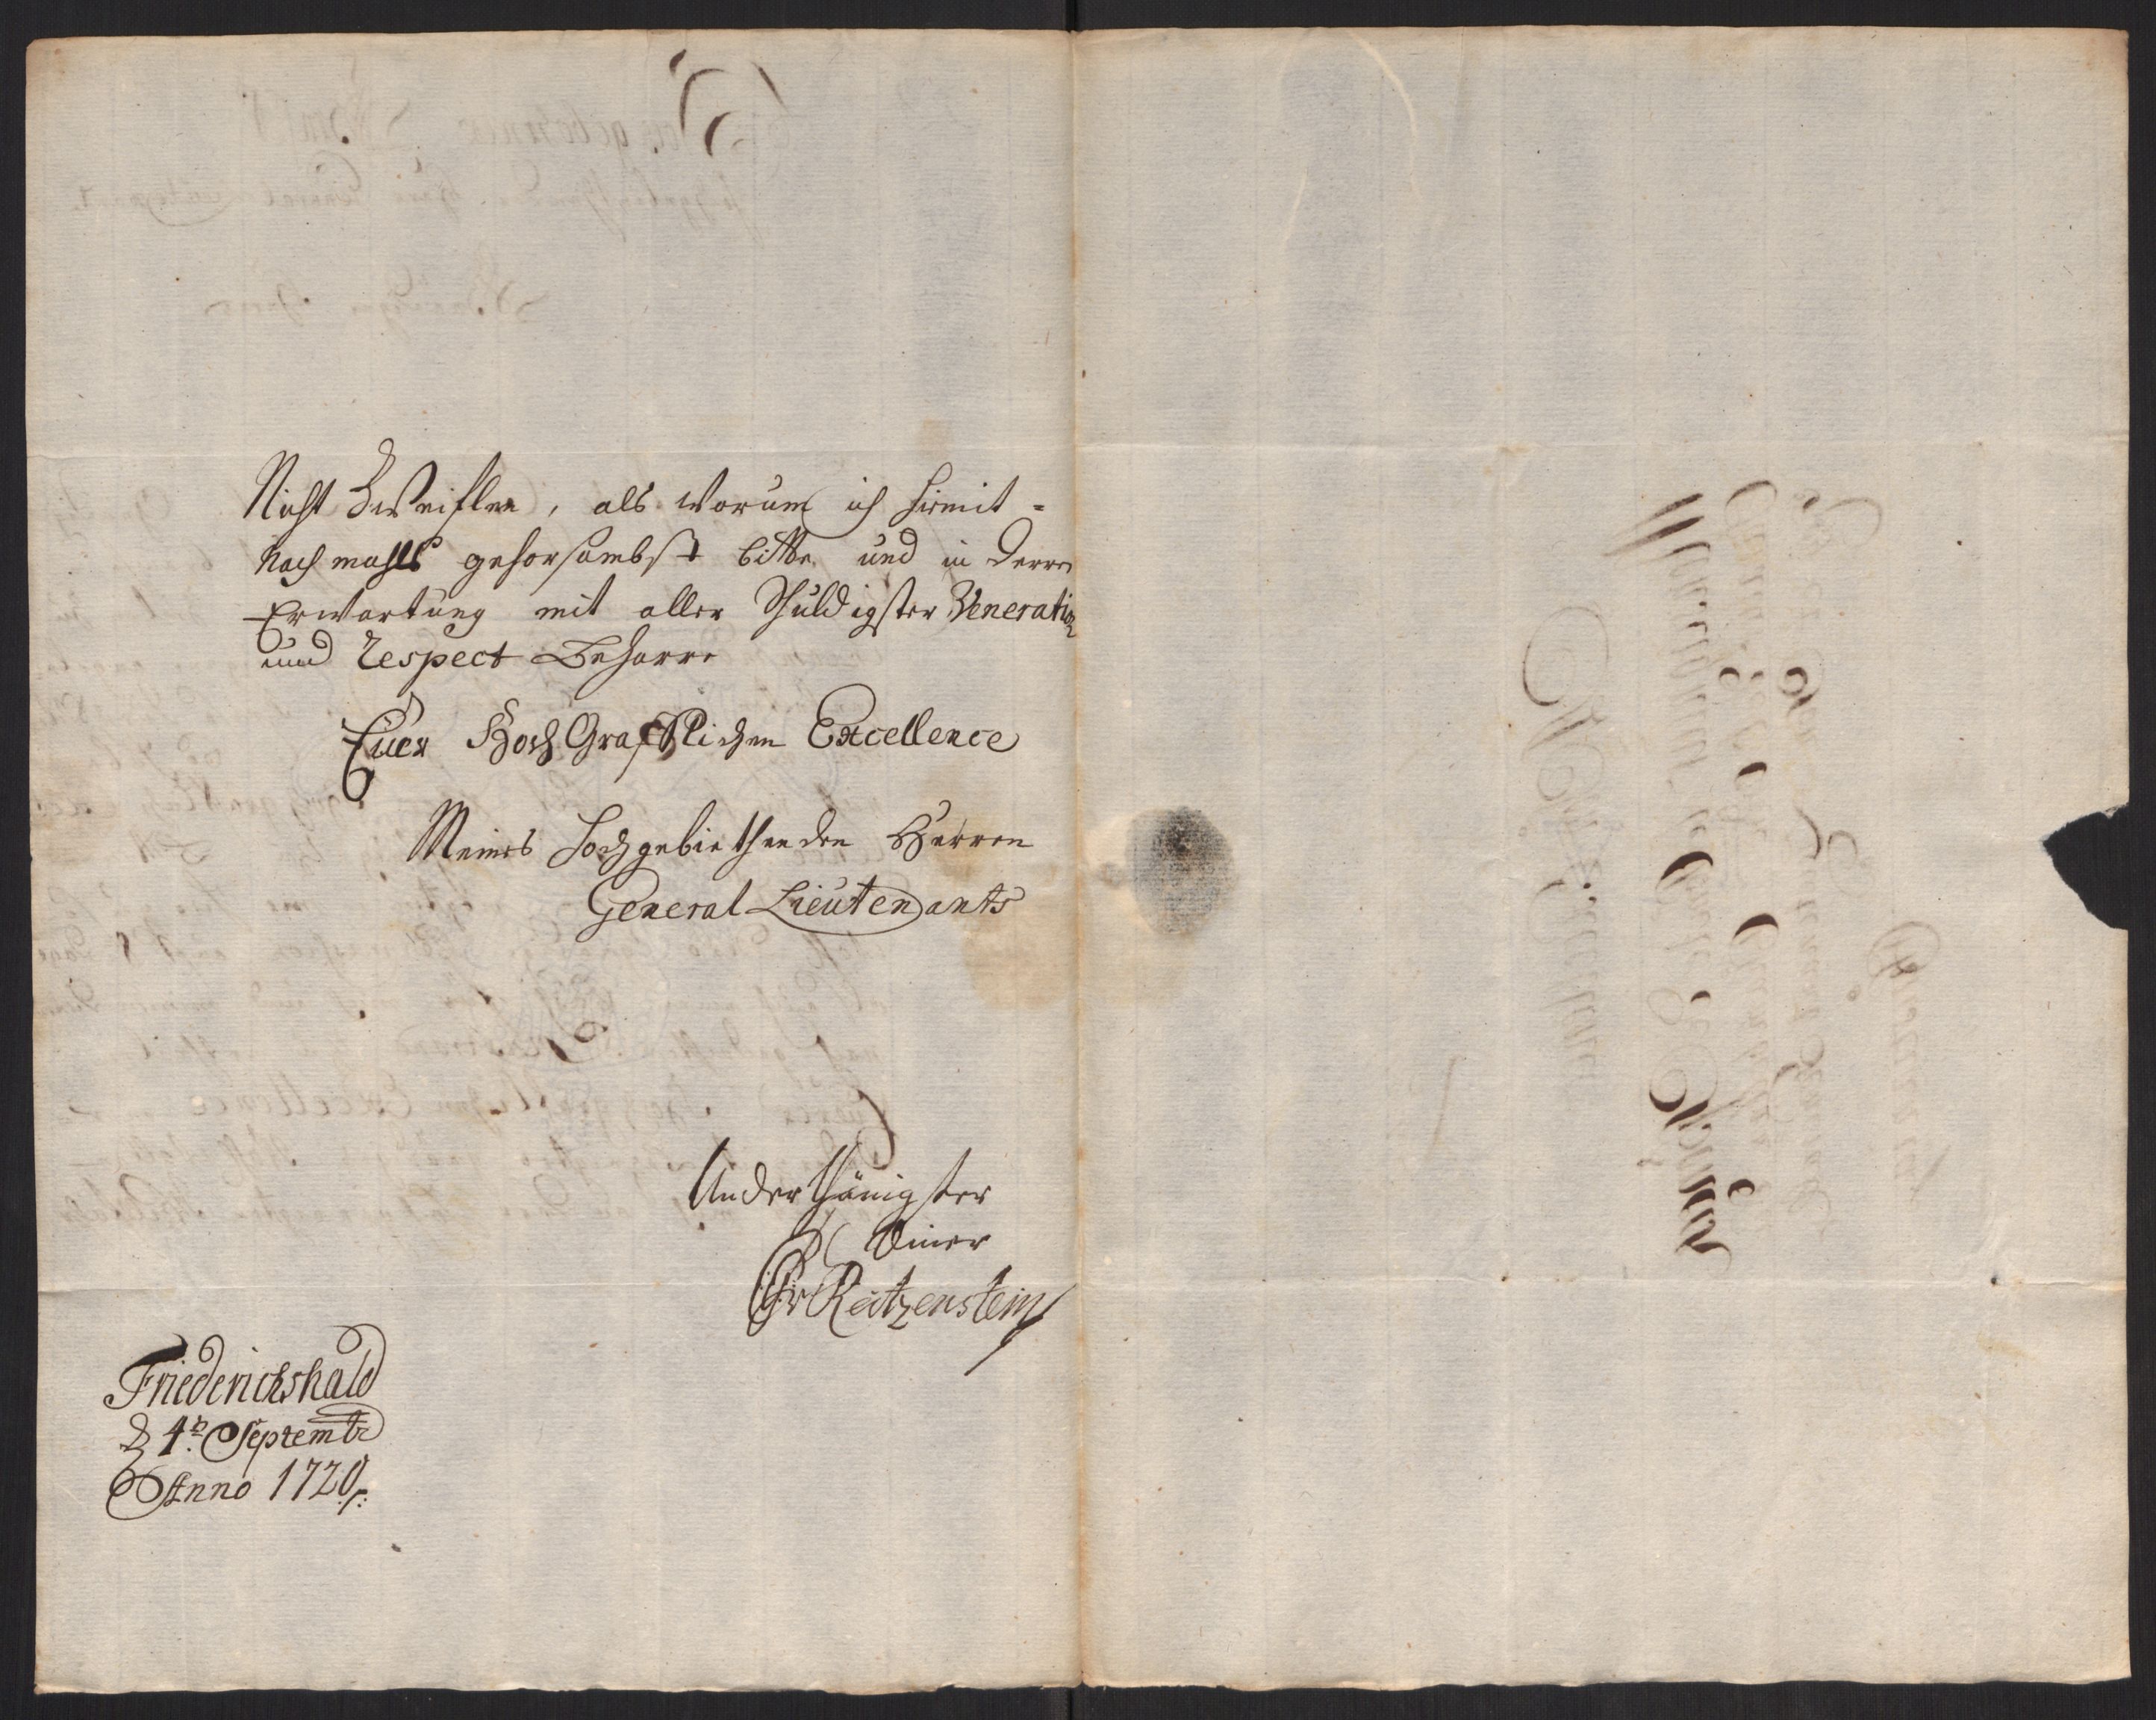 Nicht Zweiflen, als worum ich hiemit =
nochmahls gehorsambst bitte und in deren
Erwartung mit aller schuldigster Veneration
und respect beharre
Euer HochGräfflichen Excellence
Meines hochgebiethenden Herren
General Lieutenants
Underthänigster
Diener
Chr Reitzenstein
Friederichshald
d 4t. Septembr
Anno 1720